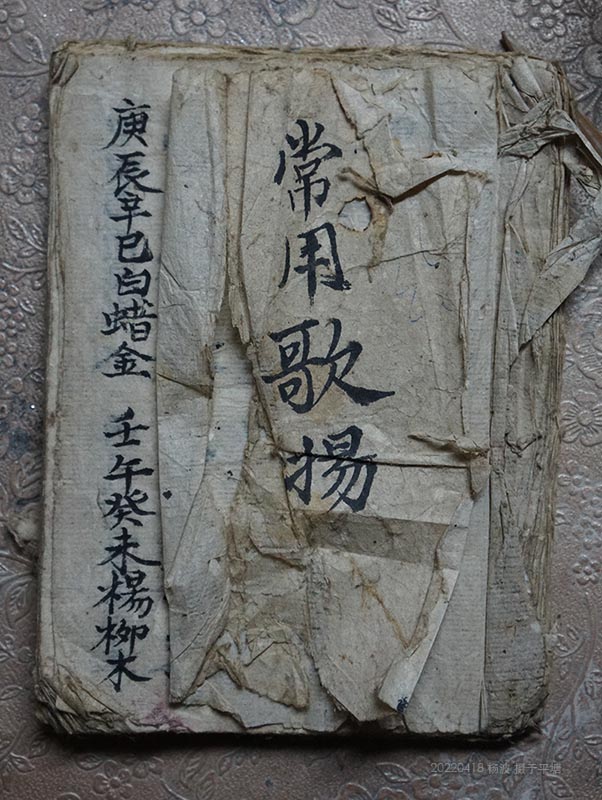 常用歌揚
庚辰辛巳白蜡金 壬午癸未楊柳木
20220418 杨波 摄于平塘